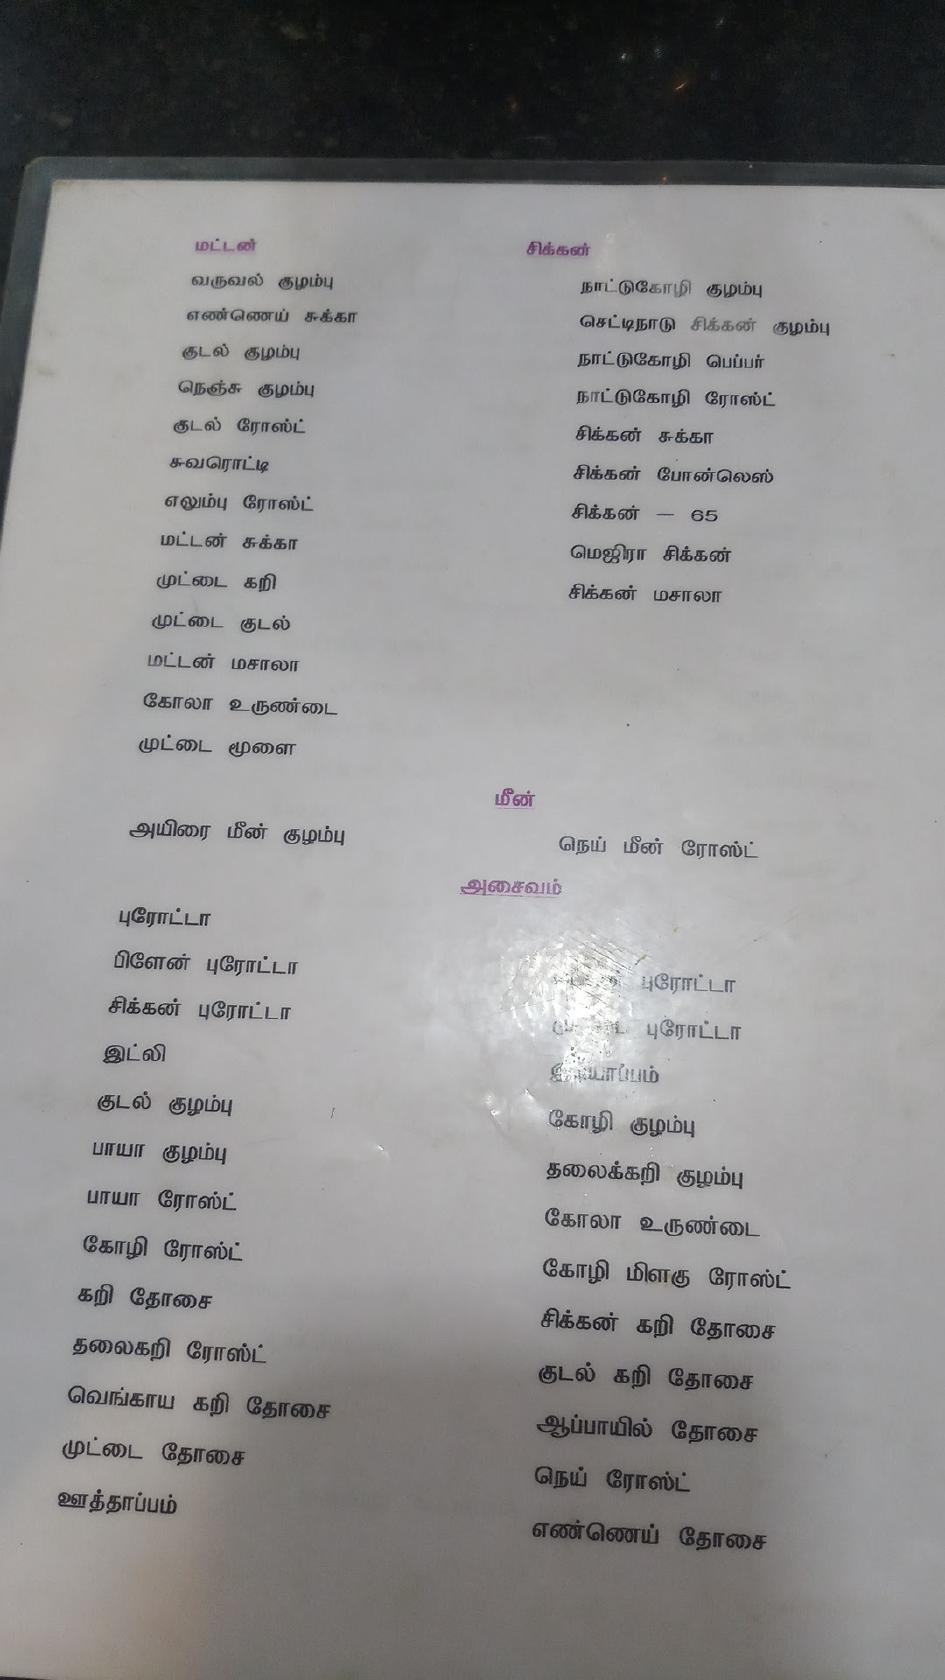 மட்டன்
வருவல் குழம்பு
எண்ணெய் சுக்கா
குடல் குழம்பு
நெஞ்சு குழம்பு
குடல் ரோஸ்ட்
சுவரொட்டி
எலும்பு ரோஸ்ட்
மட்டன் சுக்கா
முட்டை கறி
முட்டை குடல்
மட்டன் மசாலா
கோலா உருண்டை
முட்டை மூளை
சிக்கன்
நாட்டுகோழி குழம்பு
செட்டிநாடு சிக்கன் குழம்பு
நாட்டுகோழி பெப்பர்
நாட்டுகோழி ரோஸ்ட்
சிக்கன் சுக்கா
சிக்கன் போன்லெஸ்
சிக்கன் – 65
மெஜிரா சிக்கன்
சிக்கன் மசாலா
மீன்
அயிரை மீன் குழம்பு
நெய் மீன் ரோஸ்ட்
அசைவம்
புரோட்டா
பிளேன் புரோட்டா
சிக்கன் புரோட்டா
இட்லி
குடல் குழம்பு
பாயா குழம்பு
பாயா ரோஸ்ட்
கோழி ரோஸ்ட்
கறி தோசை
தலைகறி ரோஸ்ட்
வெங்காய கறி தோசை
முட்டை தோசை
ஊத்தாப்பம்
புரோட்டா
புரோட்டா
இடியாப்பம்
கோழி குழம்பு
தலைக்கறி குழம்பு
கோலா உருண்டை
கோழி மிளகு ரோஸ்ட்
சிக்கன் கறி தோசை
குடல் கறி தோசை
ஆப்பாயில் தோசை
நெய் ரோஸ்ட்
எண்ணெய் தோசை